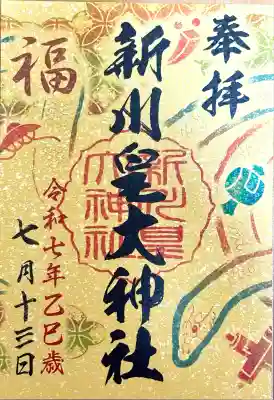 奉拝
新川皇大神社
新川皇大神社
福
令和七年乙巳歳
七月十三日